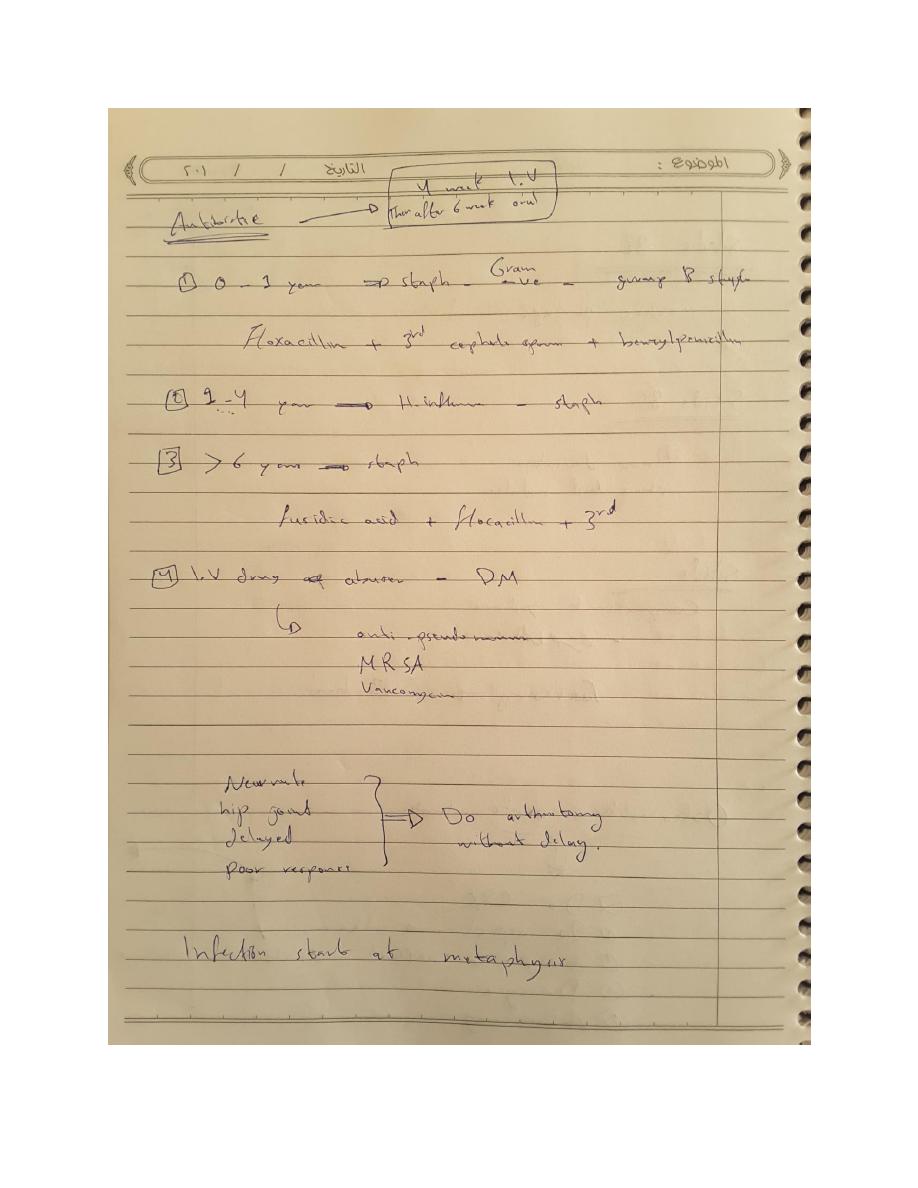 الموضوع :
التاريخ / / ٢٠١
4 week I.V
Then after 6 week oral
Antibiotic
① 0 - 1 year ⇒ staph - Gram -ve - group B
Floxacillin + 3rd cephalosporin + benzylpenicillin
2 1-4 year → H.influen - staph
3 > 6 years → staph
fusidic acid + flocacillin + 3rd
4 I.V drug abuser - DM
anti-pseudomonas
MRSA
Vancomycin
Neonate
hip joint
delayed
poor response
⇒ Do arthrotomy
without delay.
Infection start at metaphysis